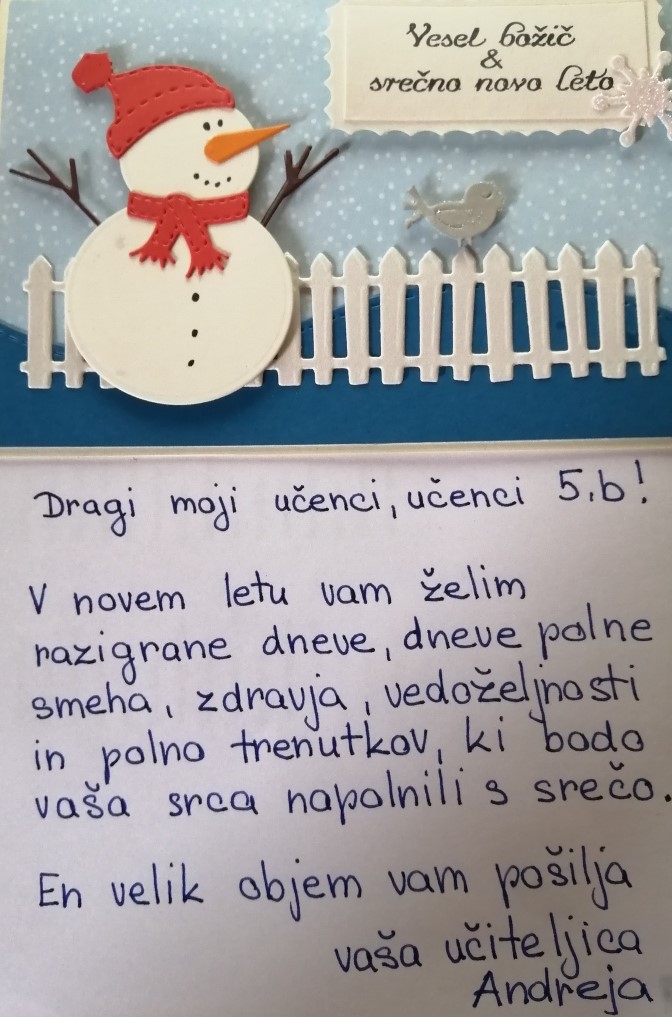 Vesel božič
&
srečno novo leto
Dragi moji učenci, učenci 5.b!
V novem letu vam želim
razigrane dneve, dneve polne
smeha, zdravja, vedoželjnosti
in polno trenutkov, ki bodo
vaša srca napolnili s srečo.
En velik objem vam pošilja
vaša učiteljica
Andreja